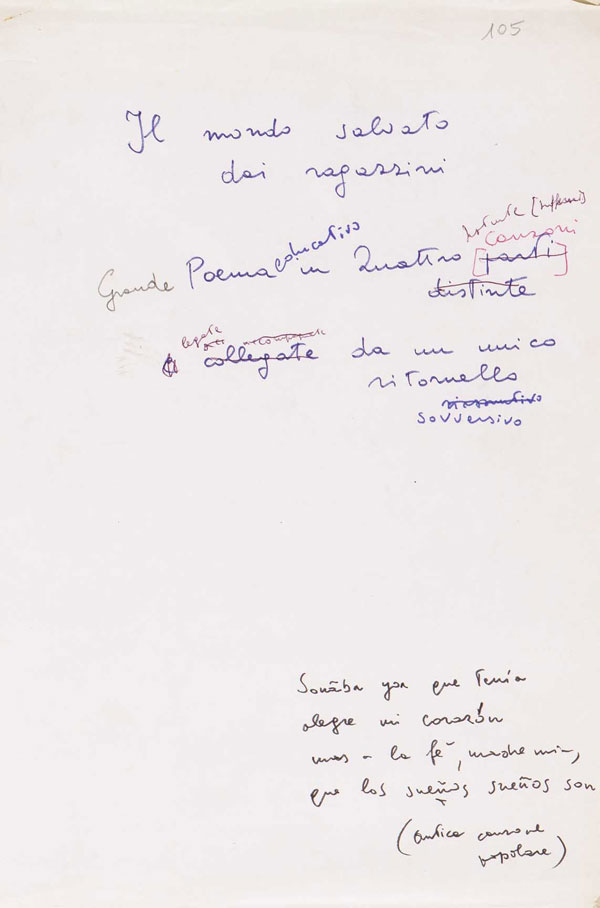 105
Il mondo salvato
dai ragazzini
canzoni
Grande Poema educativo in Quattro [parti]
distinte
legate
collegate da un unico
ritornello
riassuntivo
sovversivo
Sonāba yoa que tenía
alegre mi corazón
mas a la fé, madre mia,
que los sueños sueños son
(antica canzone
popolare)